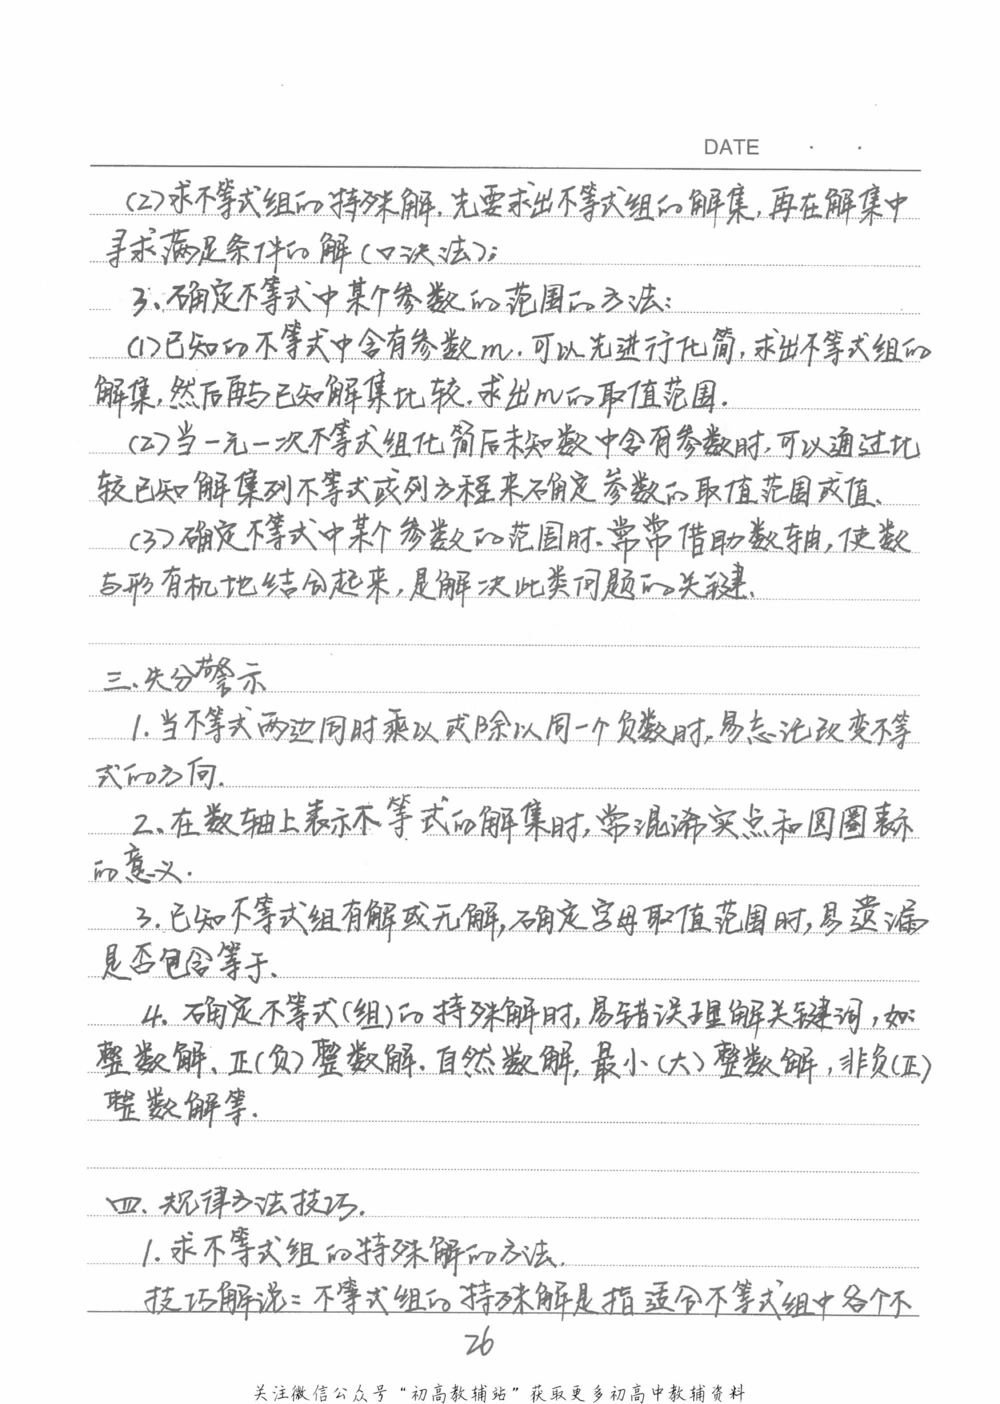 DATE · ·
(2)求不等式组的特殊解.先要求出不等式组的解集,再在解集中
寻求满足条件的解(口决法);
3、确定不等式中某个参数的范围的方法:
(1)已知的不等式中含有参数m.可以先进行化简,求出不等式组的
解集,然后再与已知解集比较.求出m的取值范围.
(2)当一元一次不等式组化简后未知数中含有参数时,可以通过比
较已知解集列不等式或列方程来确定参数的取值范围或值、
(3)确定不等式中某个参数的范围时.常常借助数轴,使数
与形有机地结合起来,是解决此类问题的关键.
三、失分警示
1.当不等式两边同时乘以或除以同一个负数时,易忘记改变不等
式的方向.
2、在数轴上表示不等式的解集时,常混淆实点和圆圈表示
的意义.
3.已知不等式组有解或无解,确定字母取值范围时,易遗漏
是否包含等于.
4.确定不等式(组)的特殊解时,易错误理解关键词,如:
整数解、正(负)整数解.自然数解,最小(大)整数解,非负(正)
整数解等.
四、规律方法技巧.
1.求不等式组的特殊解的方法.
技巧解说:不等式组的特殊解是指适合不等式组中各个不
26
关注微信公众号“初高教辅站”获取更多初高中教辅资料